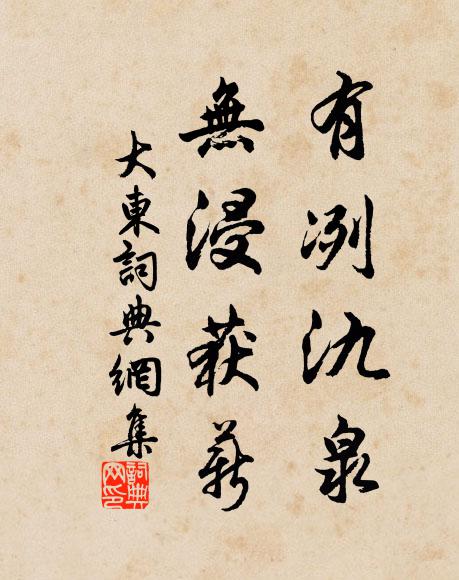 有冽氿泉
無浸获薪
大東詞典網集
詞典网印